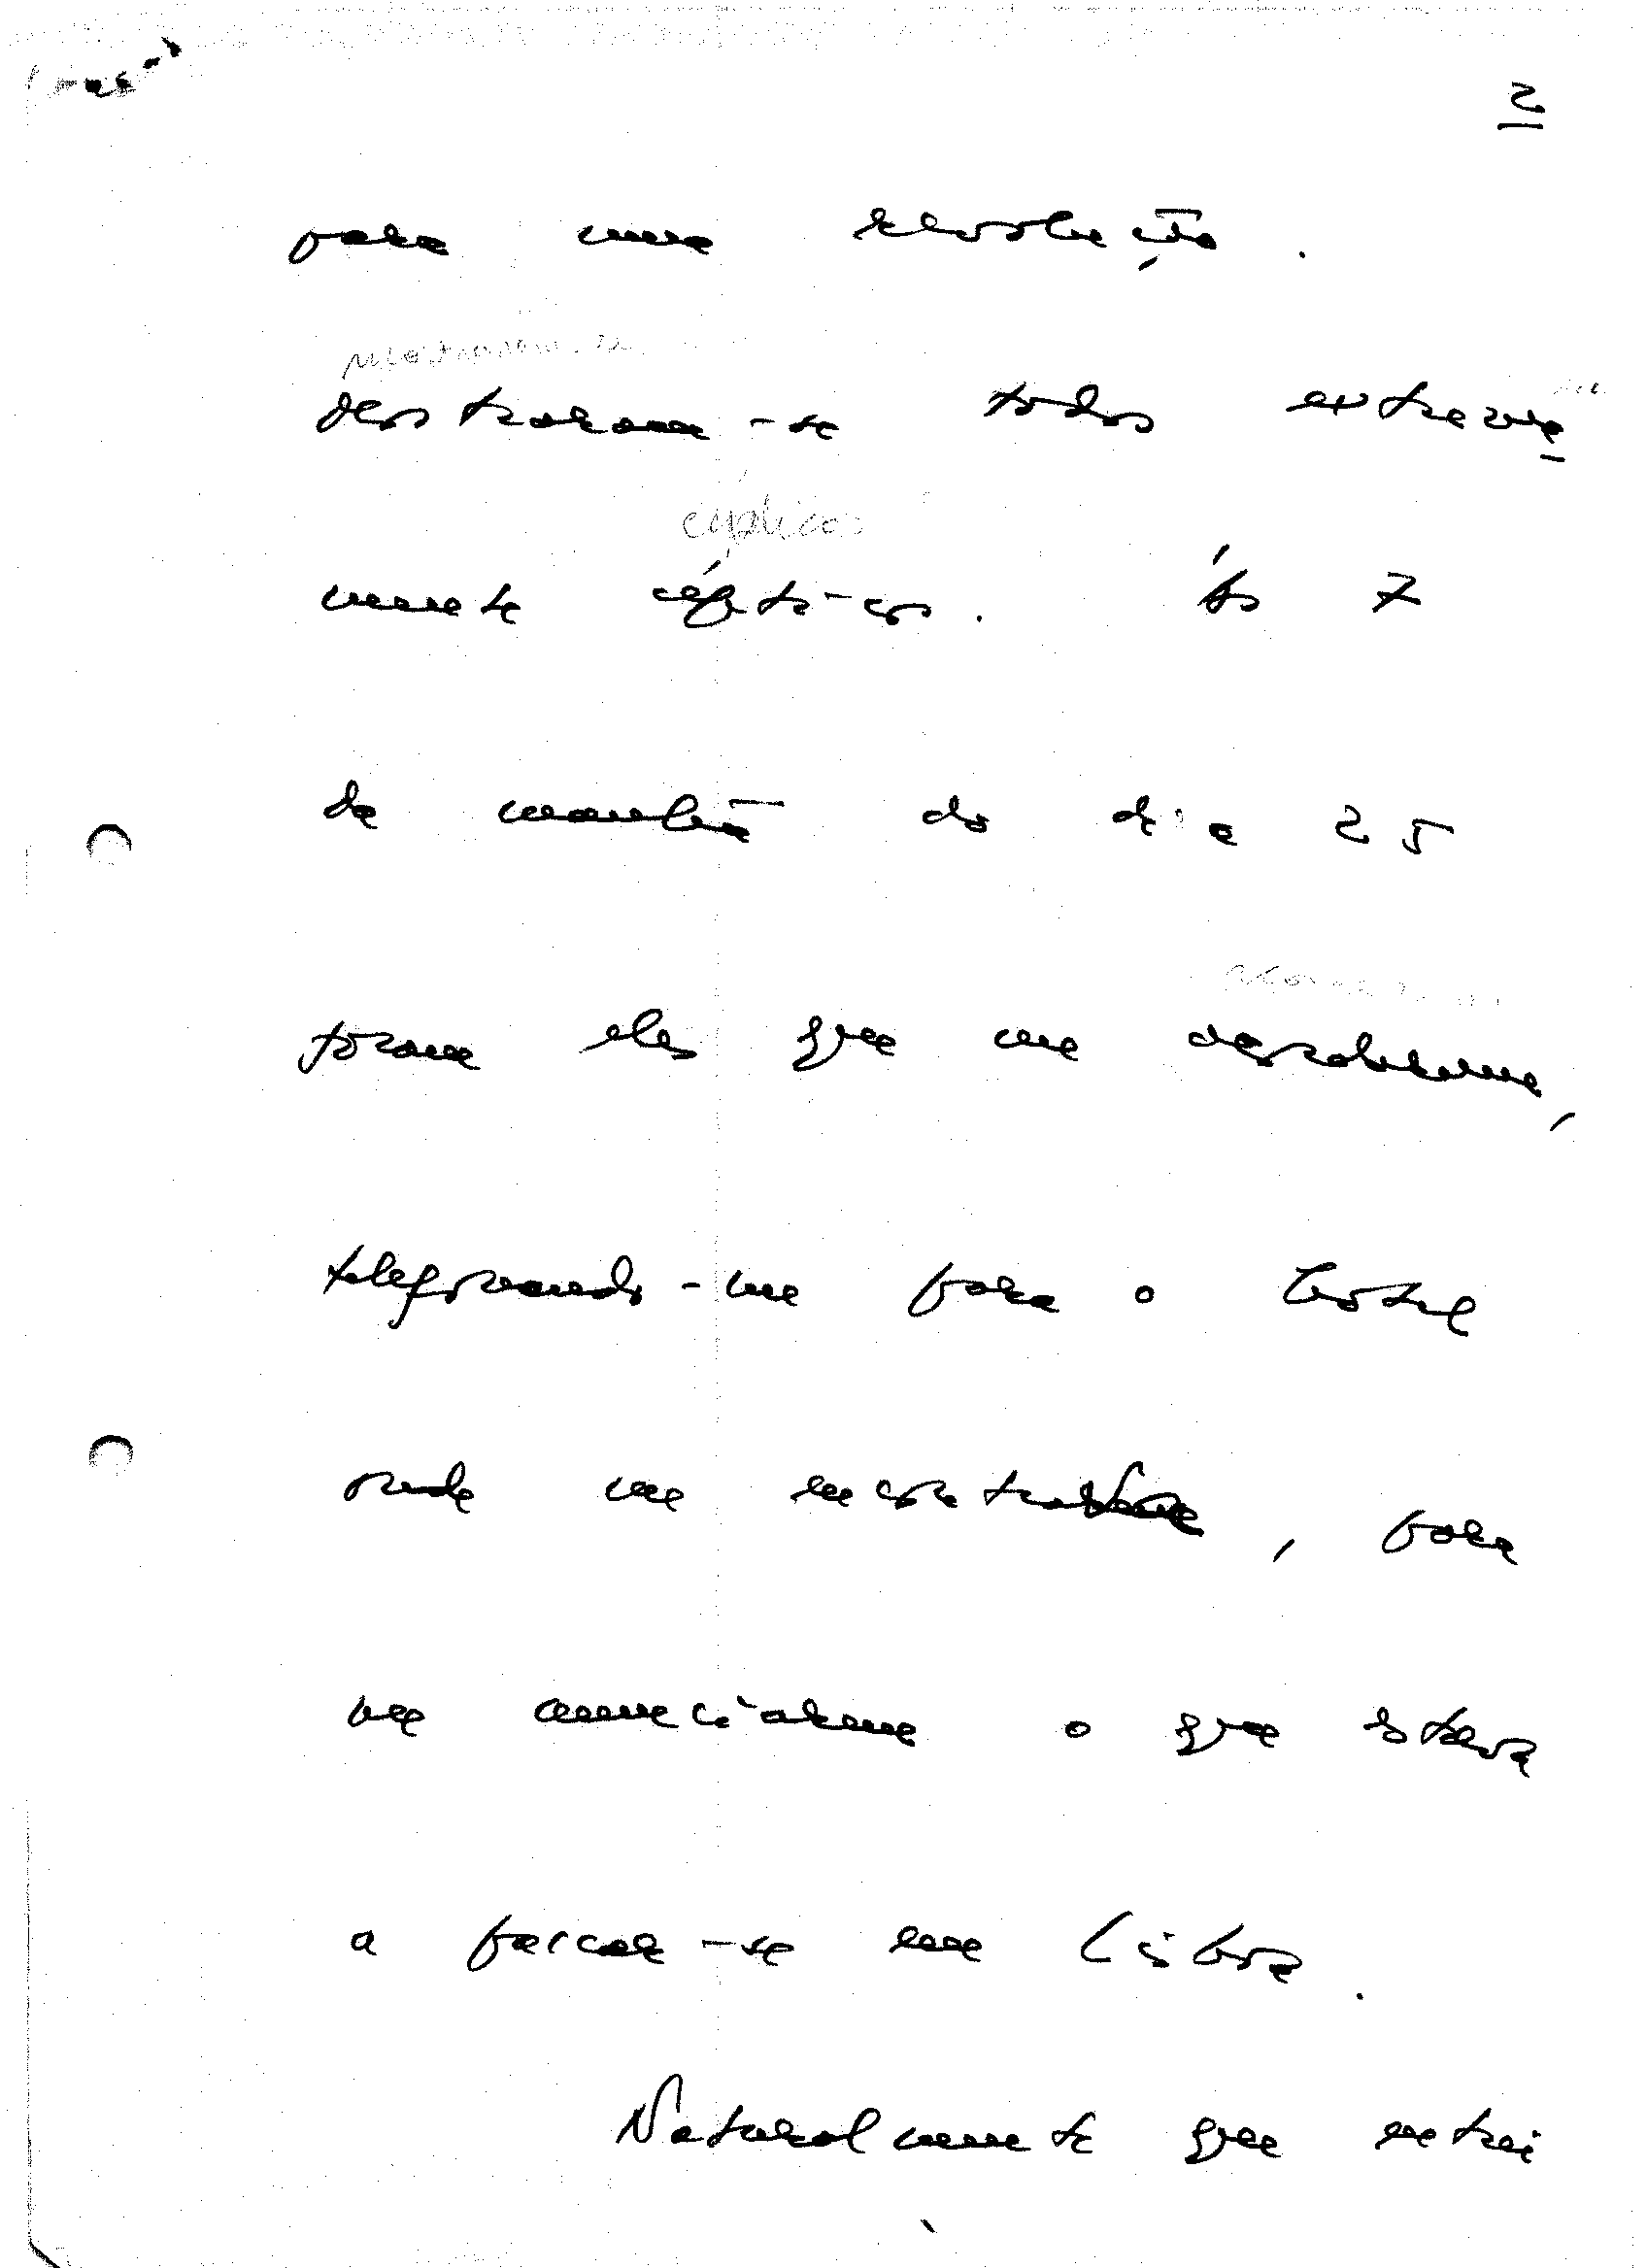 2
para uma revolução.
mostraram-se
mostraram-se todos extrema
cépticos
mente cépticos. Às 7
da manhã do dia 25
foram eles que me acordaram,
telefonando-me para o hotel
onde me encontrava, para
me anunciarem o que estava
a passar-se em Lisboa.
Naturalmente que entrei